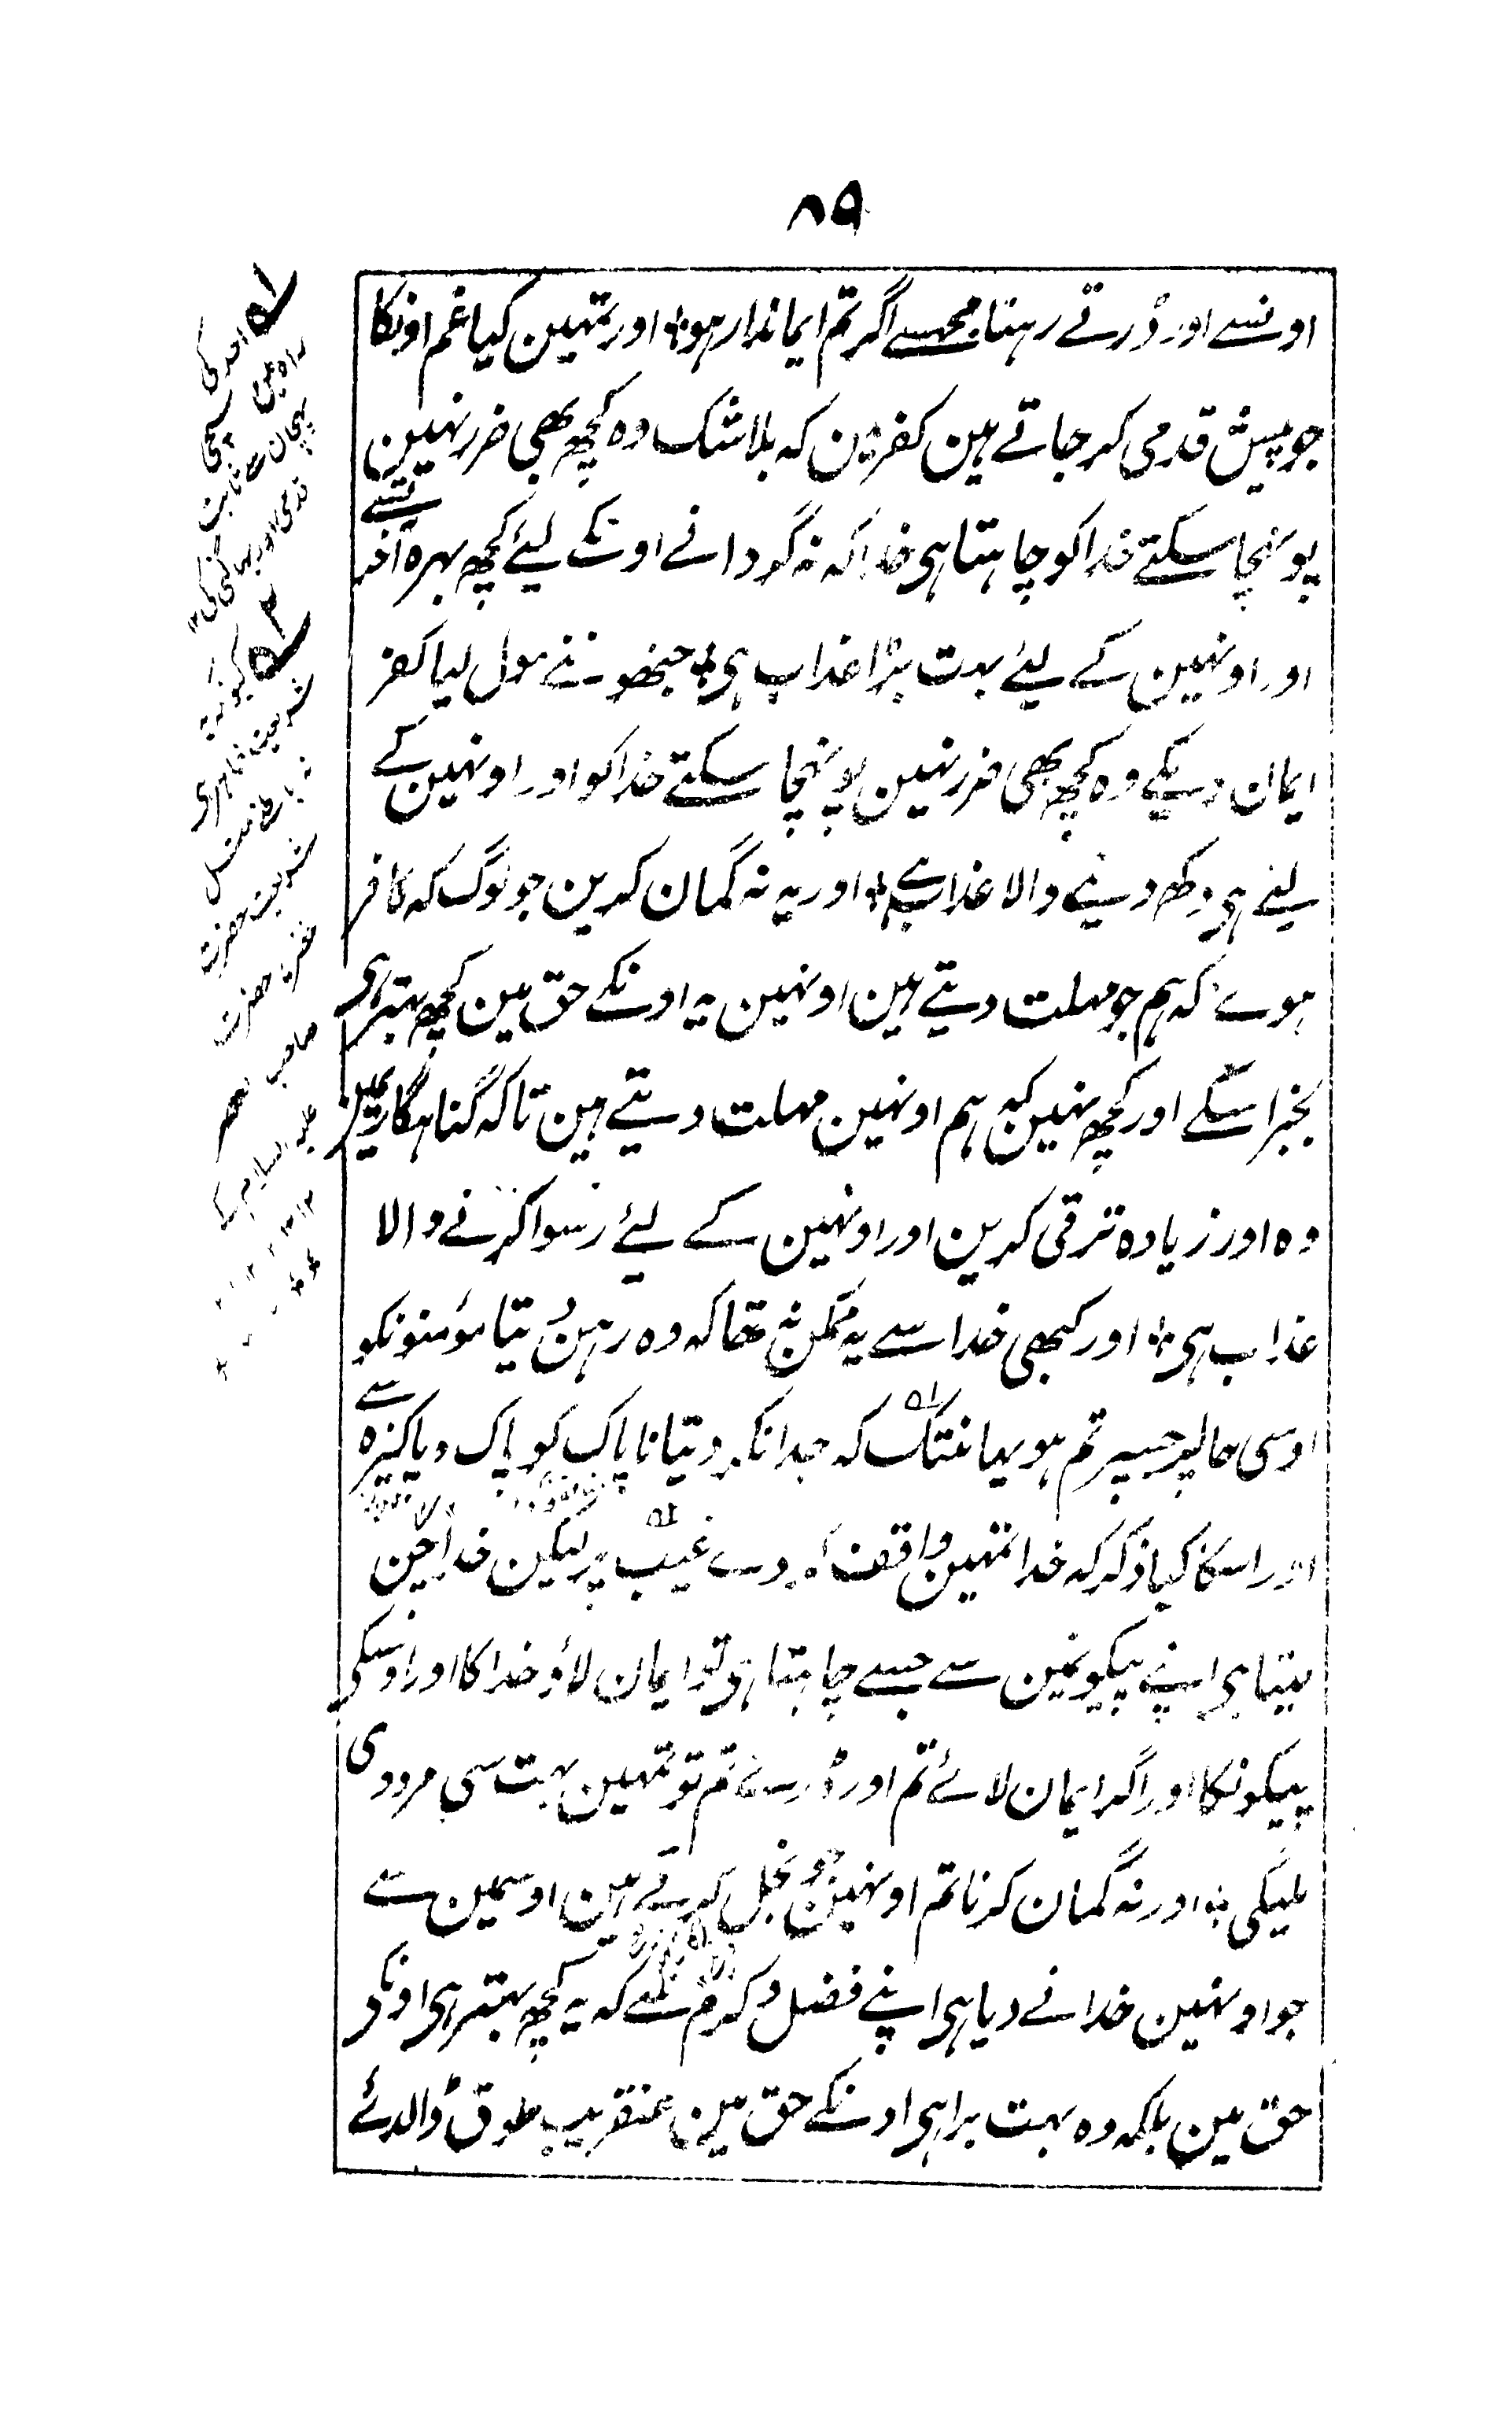 ۸۹
اونسے اور ڈرتے رہنا مجھسے اگر تم ایماندار ہو ٭ اور تمہین کیا غم اونکا
جو پیش قدمی کر جاتے ہین کفر مین کہ بلا شک وہ کچھ بھی ضرر نہین
پونہچا سکتے خدا کو چاہتا ہی خدا کہ نہ گردانے اونکے لیئے کچھ بہرہ آخرتسے
اور اونہین کے لیئے بہت بڑا عذاب ہی ٭ جنھوننے مول لیا کفر
ایمان دیکے وہ کچھ بھی ضرر نہین پونہچا سکتے خدا کو اور اونہین کے
لیئے ہی دکھ دینے والا عذاب ہے ٭ اور یہ نہ گمان کرین جو لوگ کہ کافر
ہوے کہ ہم جو مہلت دیتے ہین اونہین یہ اونکے حق مین کچھ بہتر ہی
بجز اسکے اور کچھ نہین کہ ہم اونہین مہلت دیتے ہین تاکہ گناہگاریمین
وہ اور زیادہ ترقی کرین اور اونہین کے لیئے رسوا کرنے والا
عذاب ہی ٭ اور کبھی خدا سے یہ ممکن نہ تھا کہ وہ رہن دیتا مؤمنونکو
اوسی حالپر جسپر تم ہو یہانتتک کہ جدا نکر دیتا ناپاک کو پاک و پاکیزہ سے
اور اسکا کیا ذکر کہ خدا تمہین واقف کر دے غیب پر لیکن خدا چن
لیتا ہی اپنے پیکونمین سے جسے چاہتا ہی تو ایمان لاؤ خدا کا اور اوسکی
پیکونکا اور اگر ایمان لائے تم اور ڈرے تم تو تمہین بہت سی مزدوری
ملیگی ٭ اور نہ گمان کرنا تم اونہین جو بخل کرتے ہین اوسمین سے
جو اونہین خدا نے دیا ہی اپنے فضل و کرم سے کہ یہ کچھ بہتر ہی اونکی
حق مین بلکہ وہ بہت برا ہی اونکے حق مین عنقریب طوق ڈالدئے
راہ مین سچی
پہچان ثابت
قدمی اور
کیونکہ
شریعت ظاہری
شریعت حضرت
حضرت
صاحب
علیہ السلام کے